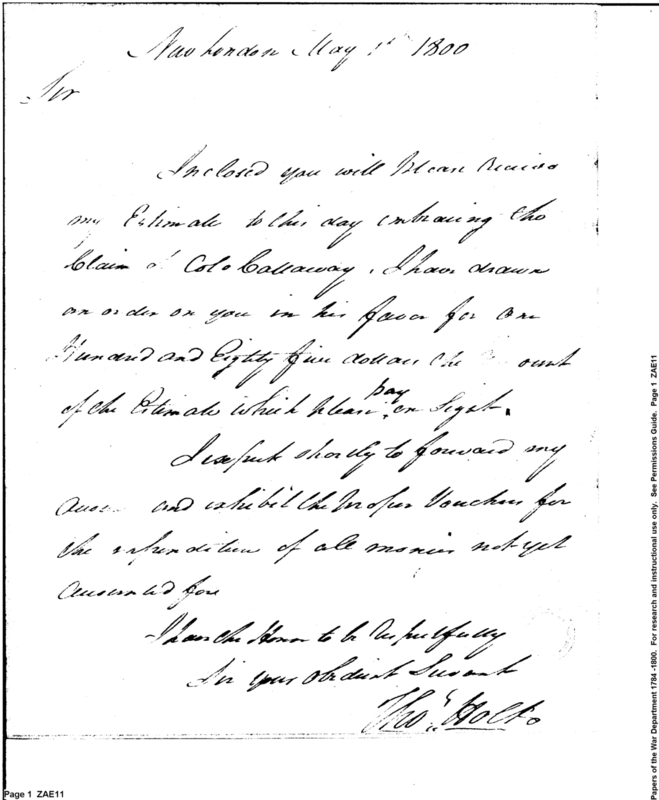 New London May 1st 1800
Sir
Inclosed you will Please Receive
my Estimate to this day embracing the
Claim of Colo Callaway, I have drawn
an order on you in his favor for One
Hundred and Eighty five dollars the ount
of the Estimate which please pay on Sight.
I expect shortly to forward my
and exhibit the proper Vouchers for
the expenditure of all monies not yet
accounted for
I have the Honor to be Respectfully
Sir your obedient Servant
Thos Holt
Page 1 ZAE11
Papers of the War Department 1784 -1800. For research and instructional use only. See Permissions Guide. Page 1 ZAE11